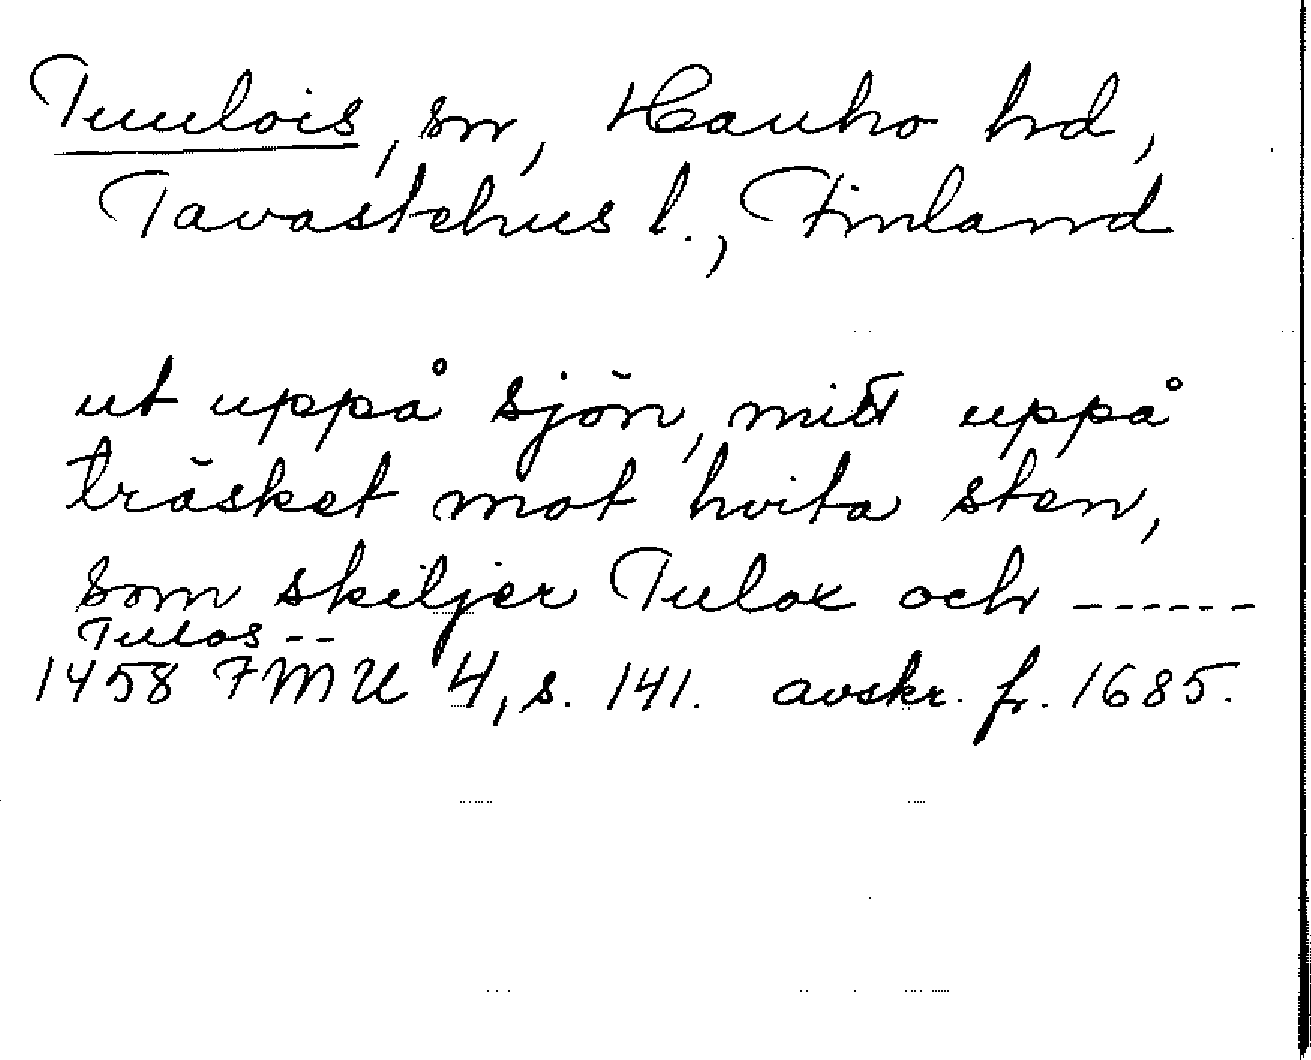 Tuulois, sn, Hauho hd,
Tavastehus l., Finland
ut uppå sjön, mitt uppå
träsket mot hvita sten,
som skiljer Tulox och ------
Tulos --
1458 FMU 4, s. 141. avskr. fr. 1685.